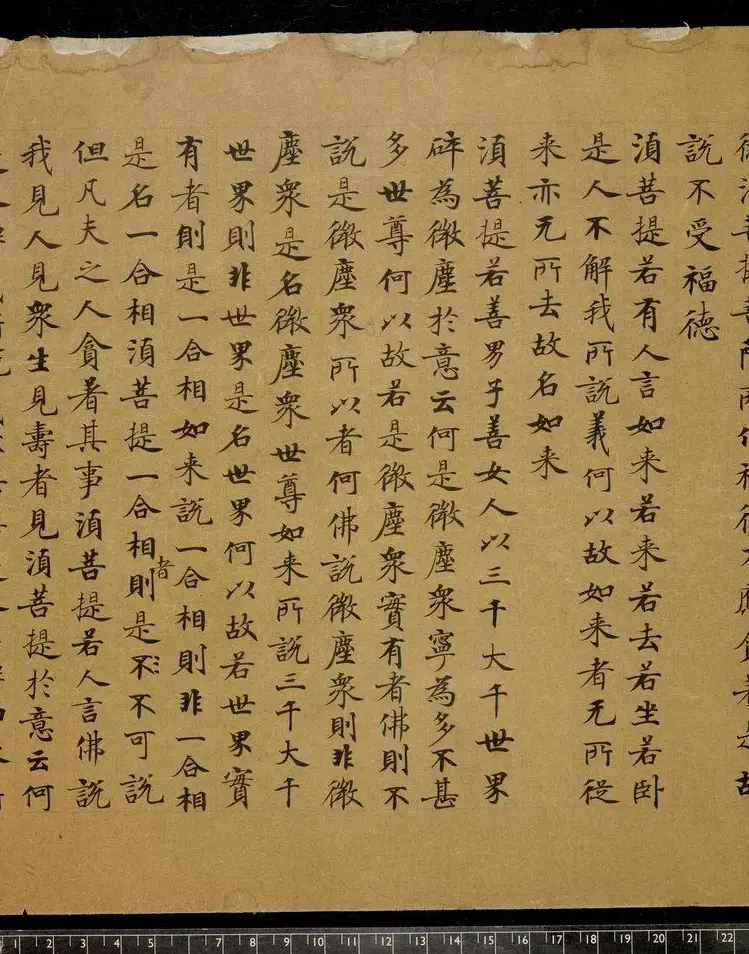 說不受福德
湏菩提若有人言如来若来若去若坐若卧
是人不解我所説義何以故如来者无所従
来亦无所去故名如来
湏菩提若善男子善女人以三千大千世界
碎為微塵於意云何是微塵衆寧為多不甚
多世尊何以故若是微塵衆實有者佛則不
説是微塵衆所以者何佛説微塵衆則非微
塵衆是名微塵衆世尊如来所説三千大千
世界則非世界是名世界何以故若世界實
有者則是一合相如来説一合相則非一合相
是名一合相湏菩提一合相者則是不不可説
但凡夫之人貪著其事湏菩提若人言佛説
我見人見衆生見壽者見湏菩提於意云何
1 2 3 4 5 7 8 9 10 11 12 13 14 15 16 17 18 19 20 21 22